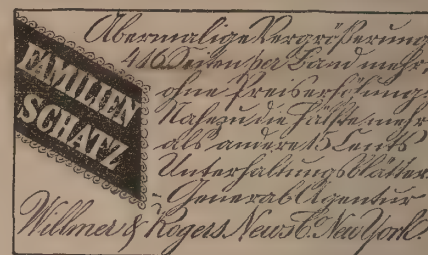 FAMILIEN
SCHATZ
Abermalige Vergrößerung
416 Seiten per Band mehr,
ohne Preiserhöhung.
Nahezu die Hälfte mehr
als andere 15 Cents
Unterhaltungsblätter.
- General Agentur
Willmer & Rogers News Co. New York.